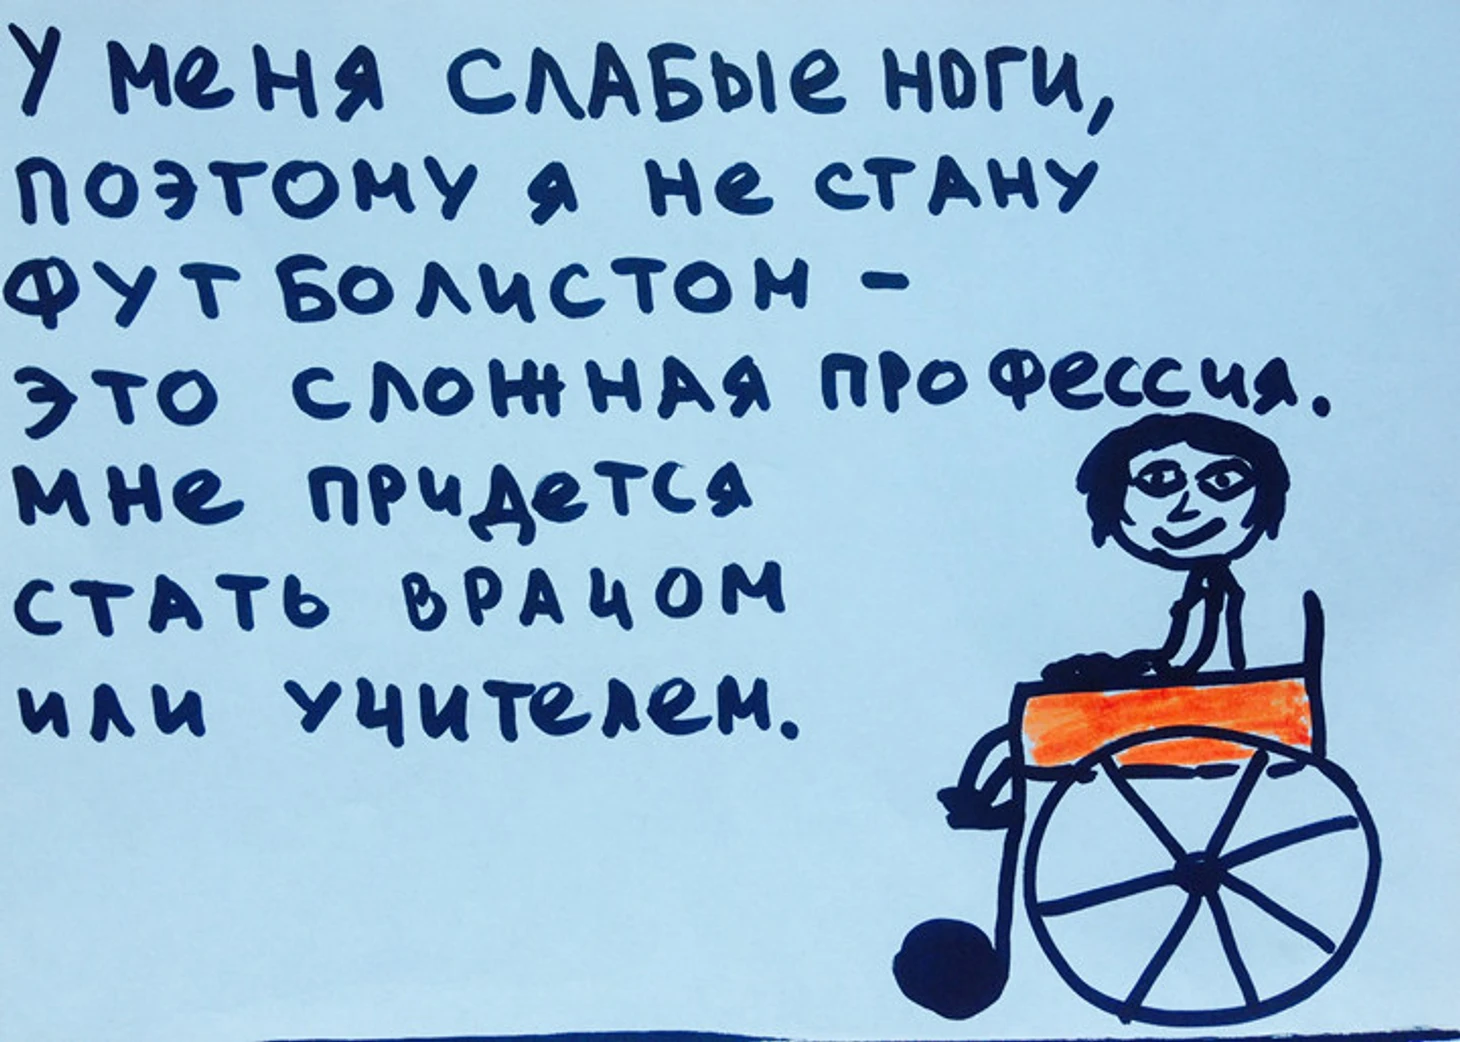 У меня слабые ноги,
поэтому я не стану
футболистом -
это сложная профессия.
мне придется
стать врачом
или учителем.